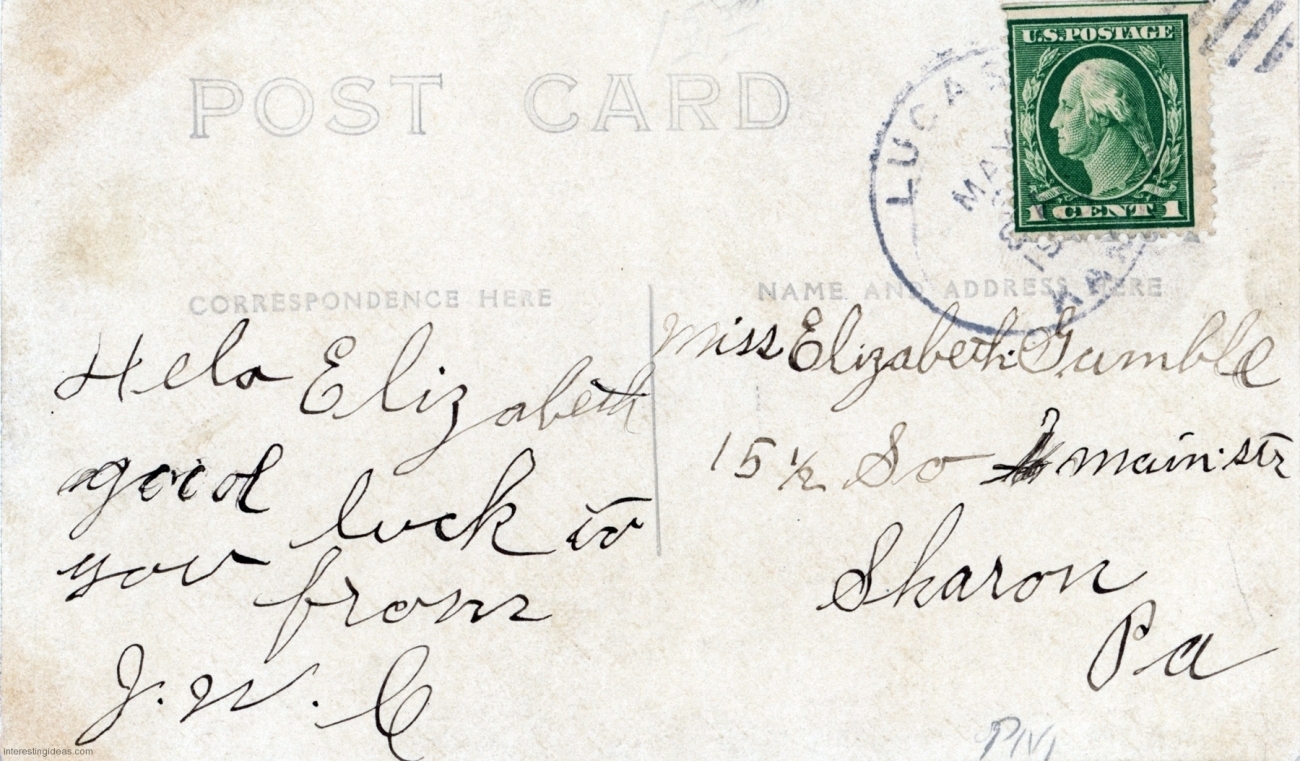 POST CARD
U.S. POSTAGE
1 CENT 1
LUCAS
MAY
KAN
CORRESPONDENCE HERE
NAME AND ADDRESS HERE
Helo Elizabeth
good luck to
you from
J. W. C
Miss Elizabeth Gumble
15 1/2 So main str
Sharon
Pa
interestingideas.com